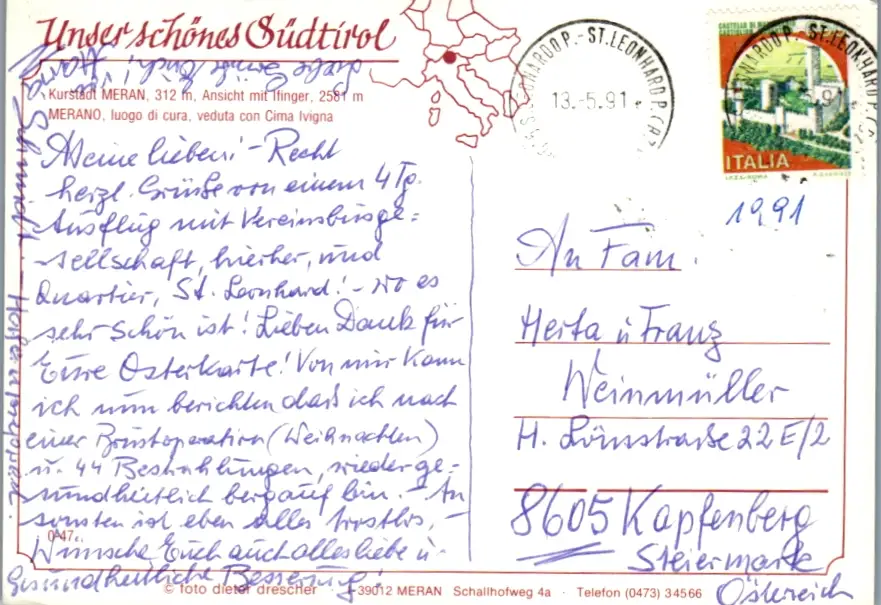 Unser schönes Südtirol
Kurstadt MERAN, 312 m, Ansicht mit Ifinger, 2581 m
MERANO, luogo di cura, veduta con Cima Ivigna
Meine lieben! - Recht
herzl. Grüße von einem 4 Tg.
Ausflug mit Vereinsbusge=
sellschaft, hierher, und
Quartier, St. Leonhard! - wo es
sehr schön ist! Lieben Dank für
Eure Osterkarte! Von mir kann
ich nun berichten daß ich nach
einer Brustoperation (Weihnachten)
u. 44 Bestrahlungen, wieder ge=
sundheitlich bergauf bin. - An
sonsten ist eben alles trostlos, -
Wünsche Euch auch alles liebe u.
Gesundheitliche Besserung!
ST. LEONHARD P.
13.-5.91
ITALIA
1991
An Fam.
Herta u Franz
Weinmüller
H. Lönsstraße 22 E/2
8605 Kapfenberg
Steiermark
Österreich
047
© foto dieter drescher · I-39012 MERAN Schallhofweg 4a · Telefon (0473) 34566